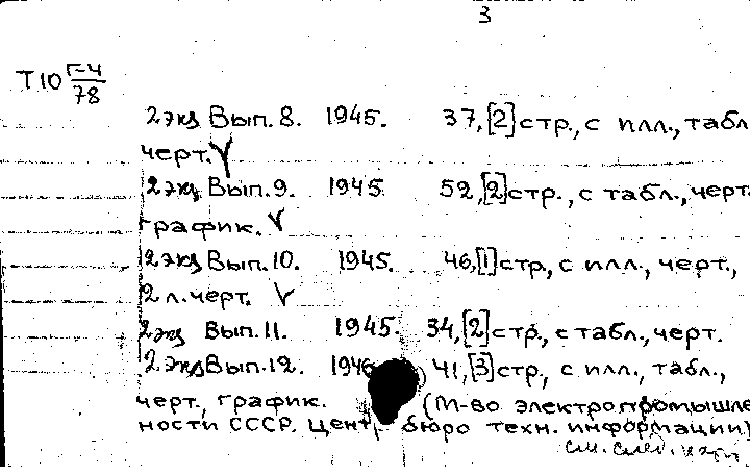 3
Т10 Г-4/78
2 экз Вып. 8. 1945. 37, [2] стр., с илл., табл
черт. V
2 экз Вып. 9. 1945 52, [2] стр., с табл., черт.
график. V
2 экз Вып. 10. 1945. 46, [1] стр., с илл., черт.,
2 л. черт. V
2 экз Вып. 11. 1945. 34, [2] стр., с табл., черт.
2 экз Вып. 12. 1946 41, [3] стр., с илл., табл.,
черт., график. (М-во электропромышлен
ности СССР. Центр бюро техн. информации)
см. след.